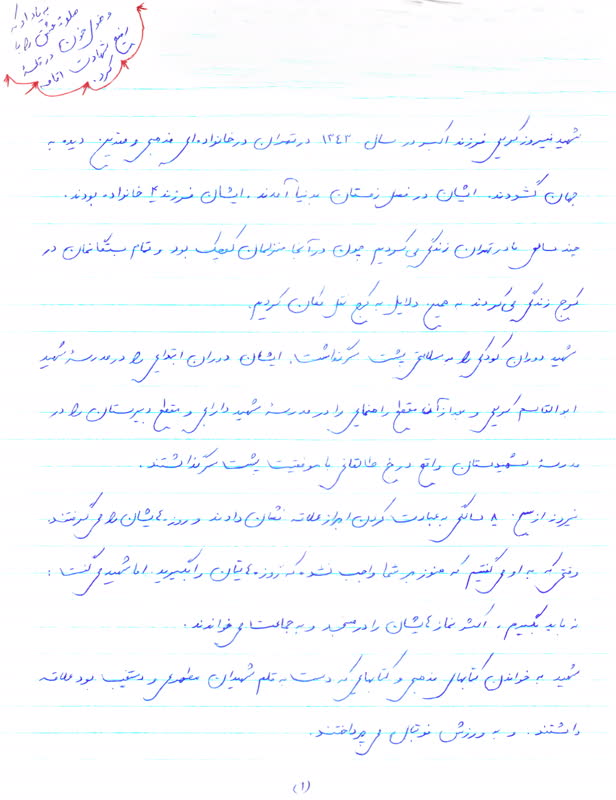 به یاد او که
صلوة عشق را با
وضوی خون در قلهٔ
رفیع شهادت اقامه
کرد.
شهید فیروز کریمی فرزند اکبر در سال ۱۳۴۳ در تهران در خانواده‌ای مذهبی و متدین دیده به
جهان گشودند. ایشان در فصل زمستان بدنیا آمدند. ایشان فرزند ۴ خانواده بودند.
چند سالی ما در تهران زندگی می‌کردیم چون در آنجا منزلمان کوچک بود و تمام بستگانمان در
کرج زندگی می‌کردند به همین دلایل به کرج نقل مکان کردیم.
شهید دوران کودکی را به سلامتی پشت سر گذاشت. ایشان دوران ابتدایی را در مدرسهٔ شهید
ابوالقاسم کریمی و بعد از آن مقطع راهنمایی را در مدرسهٔ شهید دارابی و مقطع دبیرستان را در
مدرسهٔ دهستان واقع در خ طالقانی با موفقیت پشت سر گذاشتند.
فیروز از سن ۸ سالگی به عبادت کردن ابراز علاقه نشان دادند و روزه‌هایشان را می‌گرفتند.
وقتی که به او می‌گفتیم که هنوز بر شما واجب نشده که روزه‌هایتان را بگیرید. اما شهید می‌گفت:
نه باید بگیرم. اکثر نمازهایشان را در مسجد و به جماعت می‌خواندند.
شهید به خواندن کتابهای مذهبی و کتابهایی که دست به قلم شهیدان مطهری و دستغیب بود علاقه
داشتند. و به ورزش فوتبال می‌پرداختند.
(۱)